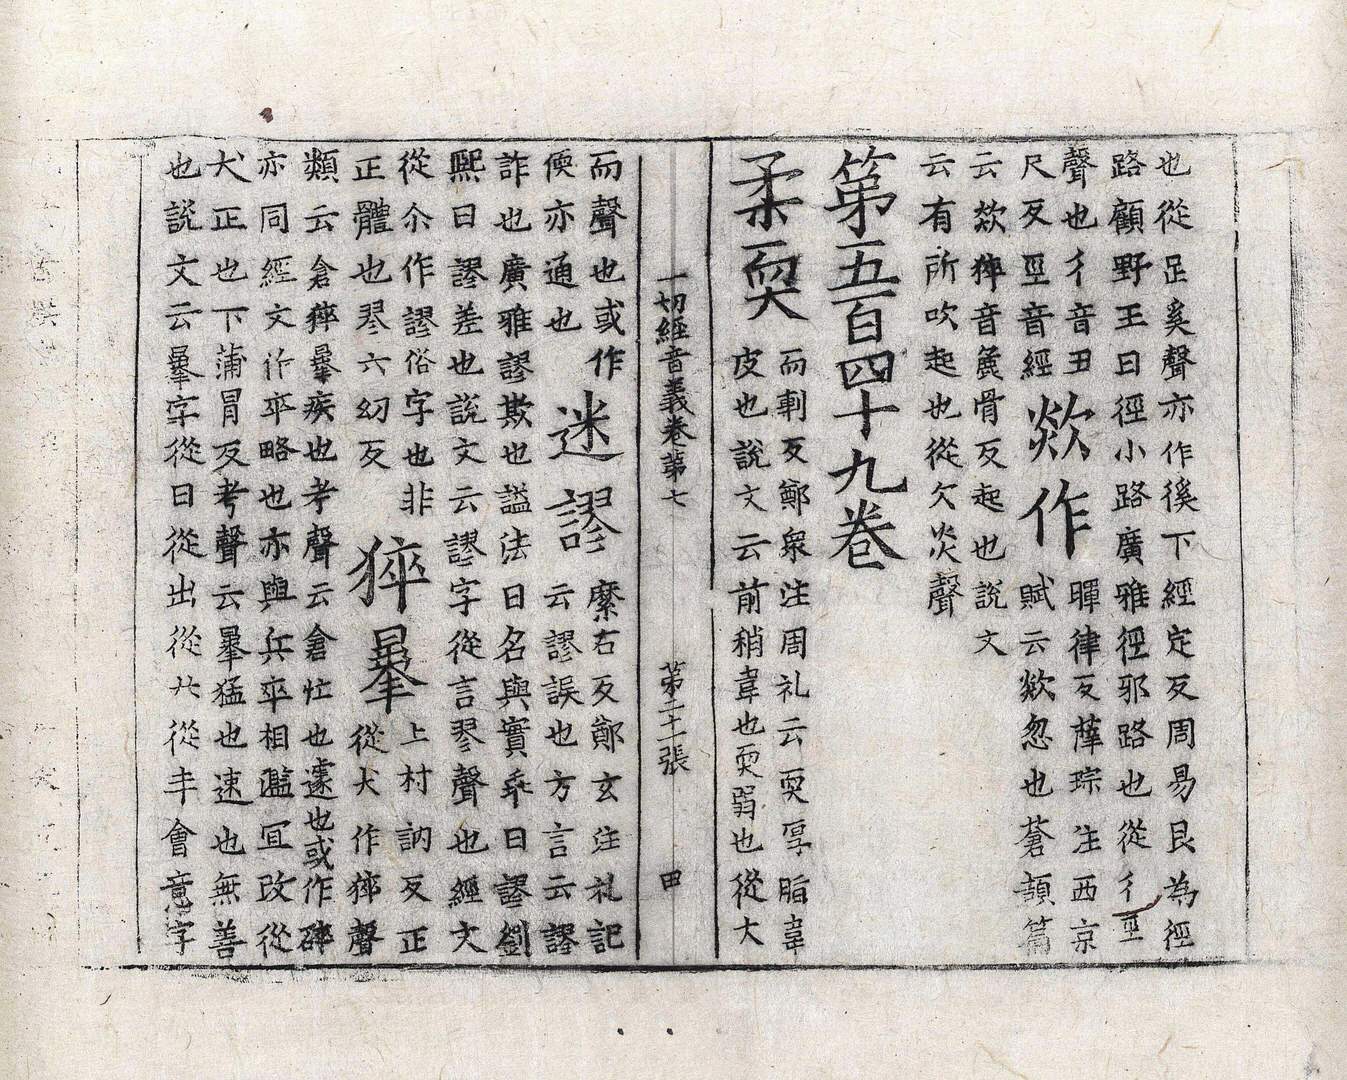 也從足奚聲亦作徯下經定反周易艮為徑
路顧野王曰徑小路廣雅徑邪路也從彳巠
聲也彳音丑
尺反巠音經
欻作
暉律反薛琮注西京
賦云欻忽也蒼頡篇
云欻猝音麁骨反起也說文
云有所吹起也從欠炎聲
第五百四十九卷
柔耎
而剸反鄭衆注周礼云耎厚脂韋
皮也說文云前稍韋也耎弱也從大
一切經音義卷第七 第二十一張 田
而聲也或作
偄亦通也
迷謬
縻右反鄭玄注礼記
云謬誤也方言云謬
詐也廣雅謬欺也謚法曰名與實乖曰謬劉
熙曰謬差也說文云謬字從言翏聲也經文
從尒作謬俗字也非
正體也翏六幼反
猝㬥
上村訥反正
從犬作猝聲
類云倉猝㬥疾也考聲云倉忙也遽也或作碎
亦同經文作卒略也亦與兵卒相濫冝改從
犬正也下蒲冒反考聲云㬥猛也速也無善
也說文云㬥字從日從出從廾從半會意字